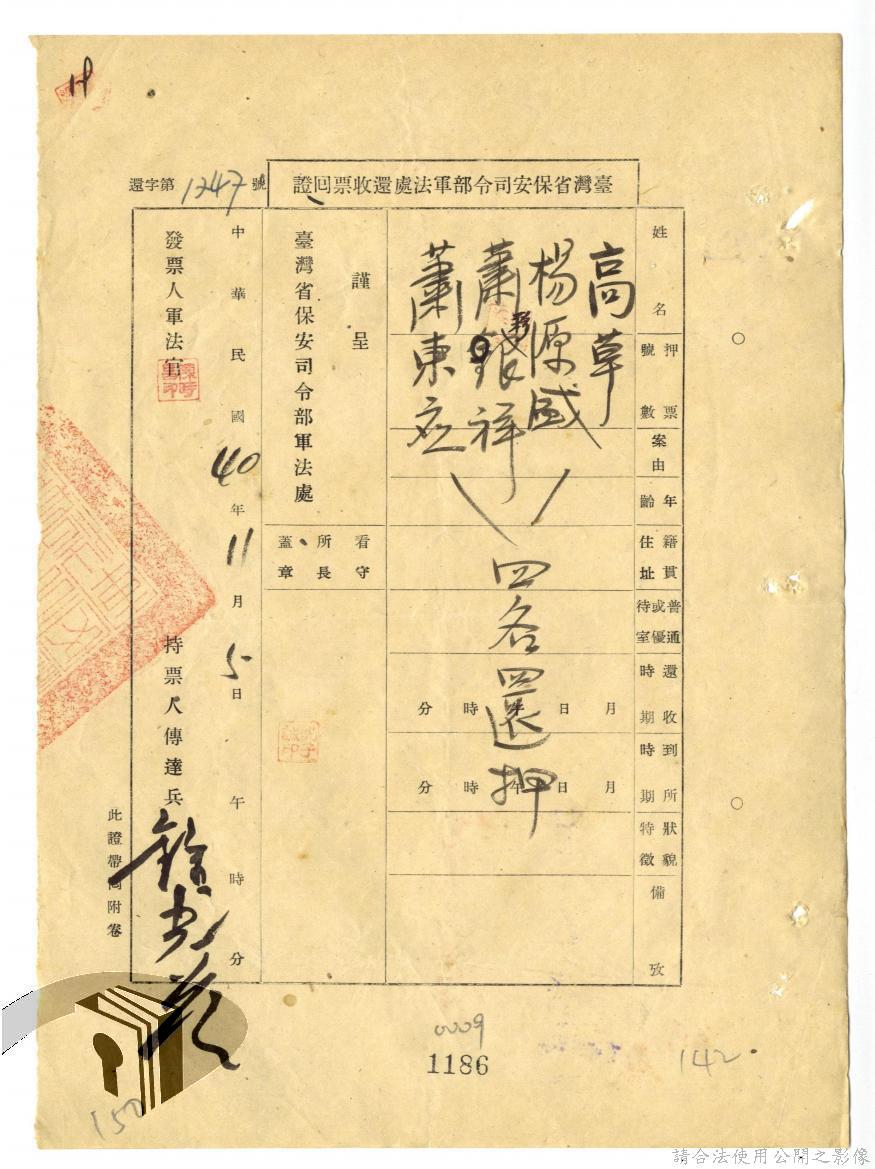 臺灣省保安司令部軍法處還收票回證
還字第1247號
姓名
押票號數
案由
年齡
籍貫住址
普通或優待室
還收時期
到所時期
狀貌特徵
備攷
高草
楊源盛
蕭銀祥
蕭東底
四名還押
月 日 午 時 分
月 日 午 時 分
謹呈
臺灣省保安司令部軍法處
看守所長蓋章
中華民國40年11月5日 午 時 分
發票人軍法官
持票人傳達兵
此證帶回附卷
0009
1186
142
150
請合法使用公開之影像